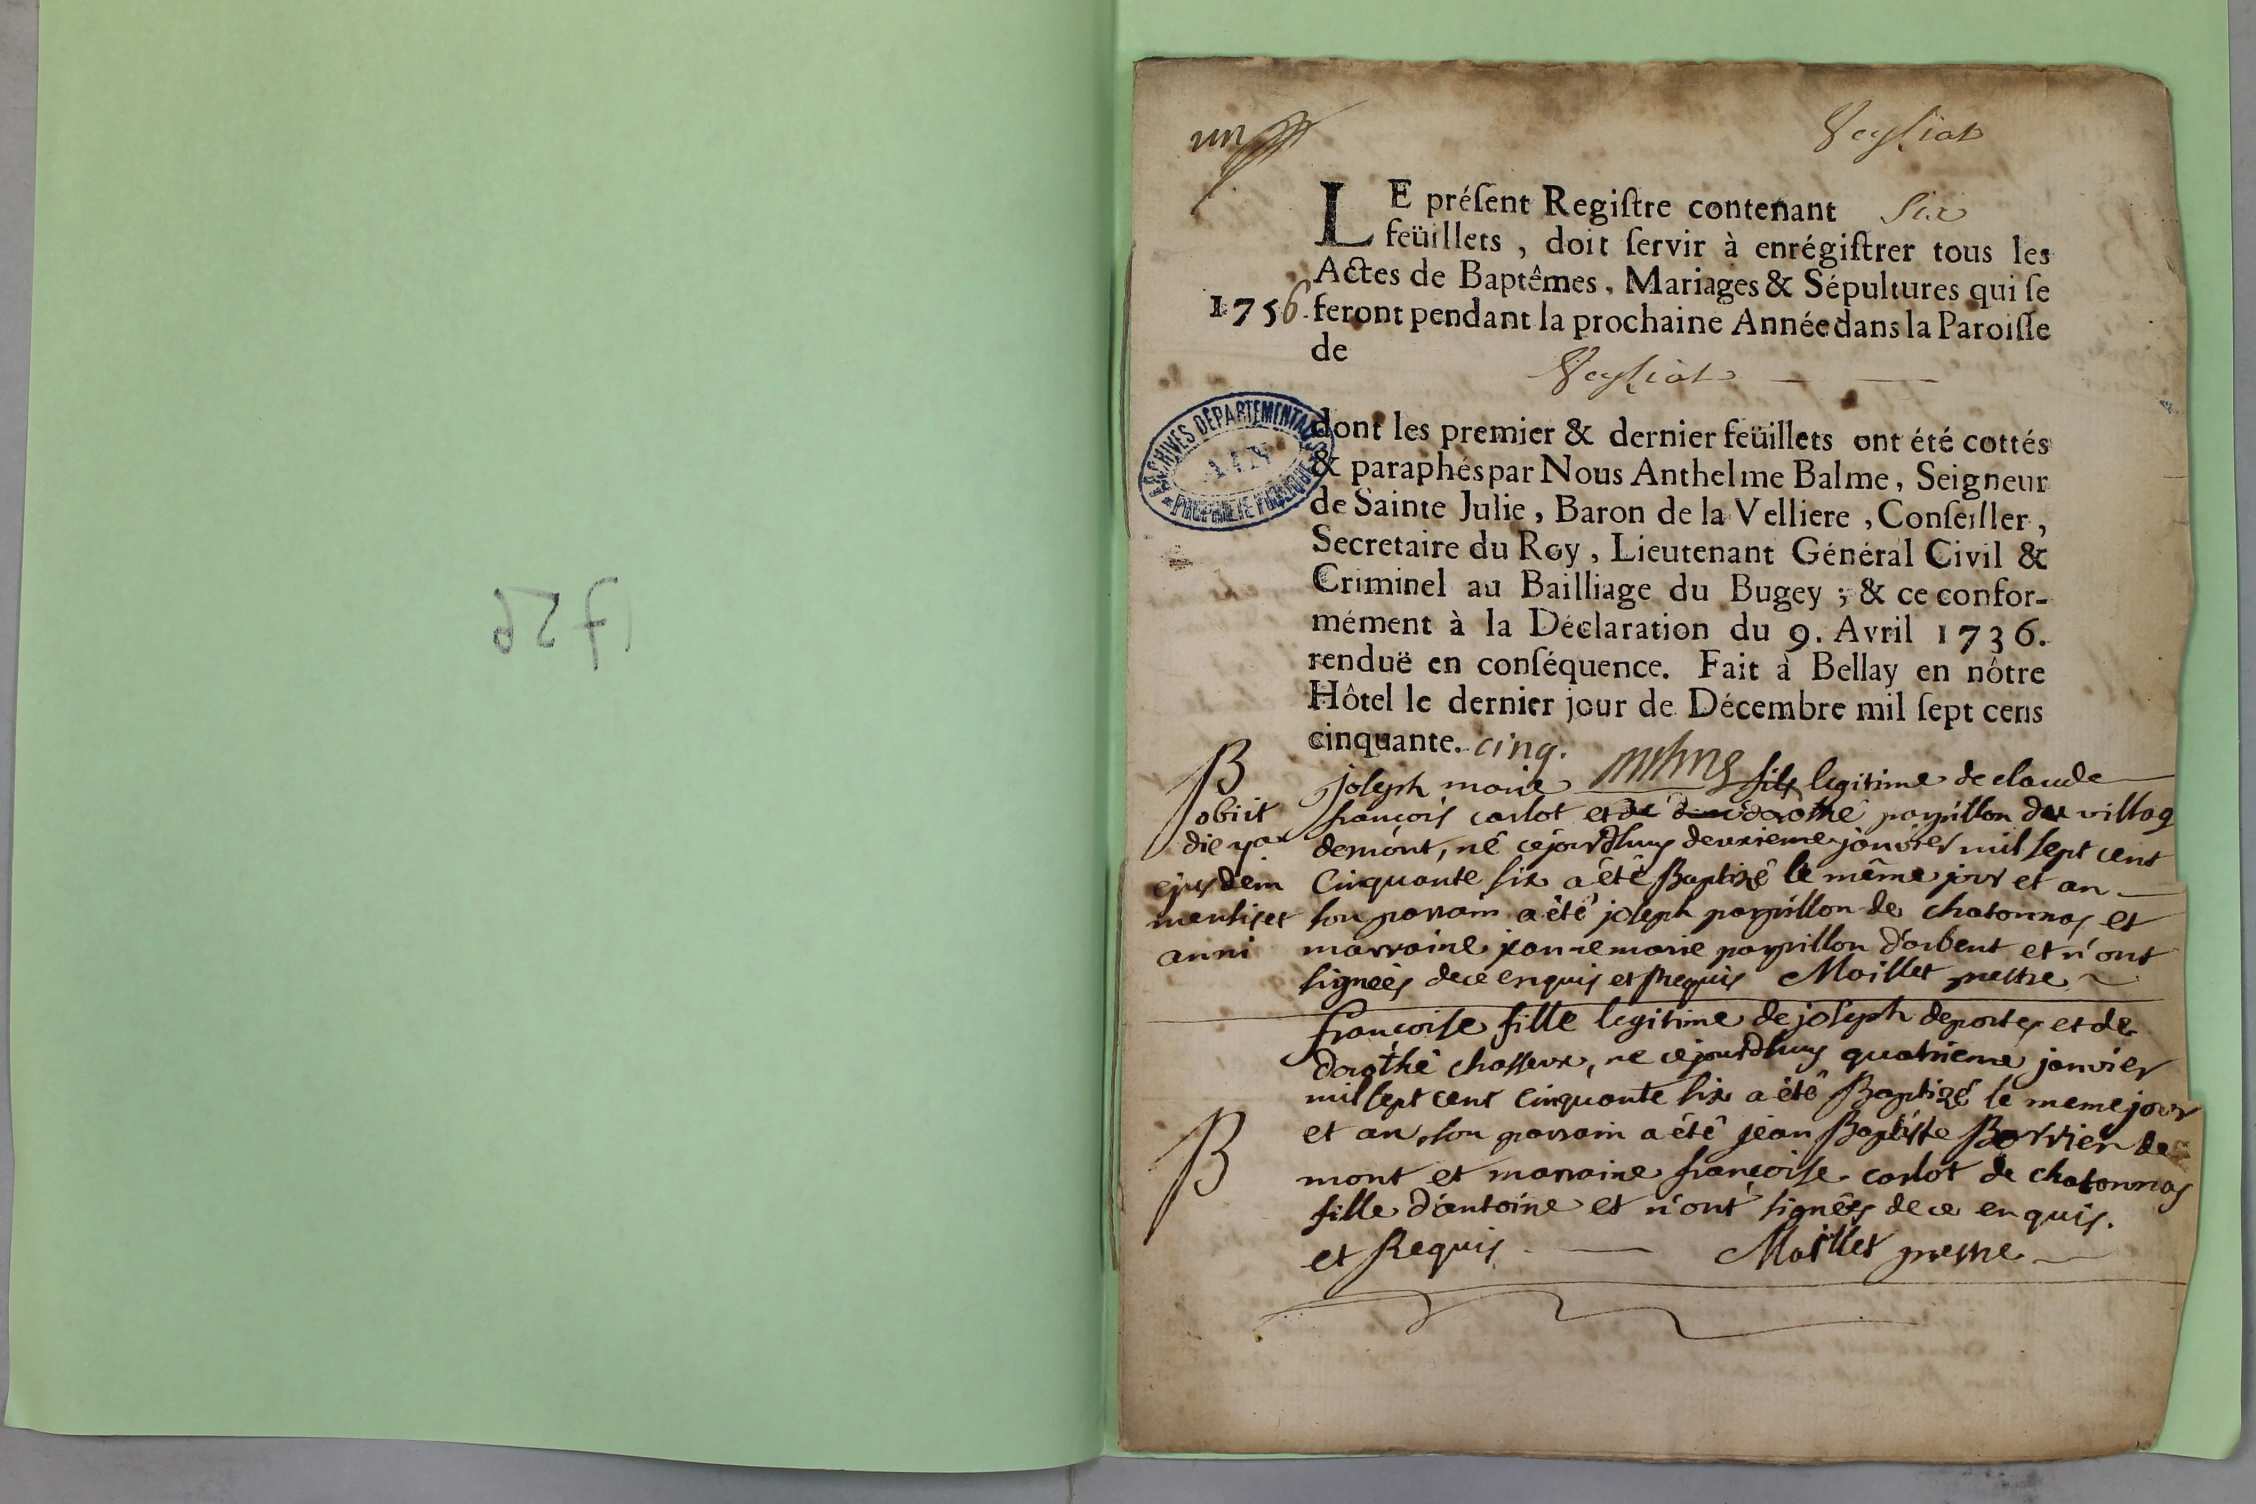 un
Veyziat
LE préſent Regiſtre contenant six
feüillets, doit ſervir à enrégiſtrer tous les
Actes de Baptêmes, Mariages & Sépultures qui ſe
1756. feront pendant la prochaine Année dans la Paroiſſe
de
Veyziat
dont les premier & dernier feüillets ont été cottés
& paraphés par Nous Anthelme Balme, Seigneur
de Sainte Julie, Baron de la Velliere, Conſeiller,
Secretaire du Roy, Lieutenant Général Civil &
Criminel au Bailliage du Bugey; & ce confor-
mément à la Déclaration du 9. Avril 1736.
renduë en conſéquence. Fait à Bellay en nôtre
Hôtel le dernier jour de Décembre mil ſept cens
cinquante. cinq.
ARCHIVES DÉPARTEMENTALES
AIN
PROPRIÉTÉ PUBLIQUE
B
obiit
die
ejusdem
mensis et
anni
joseph marie fils legitime de claude
françois carlot et dorothé papillon du villag
demont, né cejourdhuy deuxieme janvier mil sept cent
Cinquante six a été Baptizé le même jour et an
son parrain a été joseph papillon de chatonnas et
marraine jeanne marie papillon d'arbent et n'ont
signées de ce enquis et Requis Maillet prestre
françoise fille legitime de joseph deportes et de
dorothé chasseur, ne cejourdhuy quatrieme janvier
mil sept cent Cinquante six a été Baptizé le meme jour
B
et an, son parrain a été jean Baptiste Berrier de
mont et marraine françoise carlot de chatonnas
fille d'antoine et n'ont signées de ce enquis.
et Requis Maillet prestre
1756